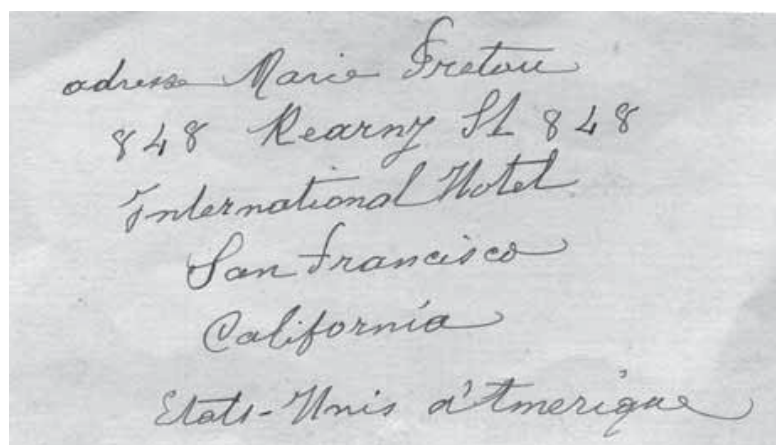 adresse Marie Fretou
848 Kearny St 848
International Hotel
San Francisco
California
Etats-Unis d'Amerique